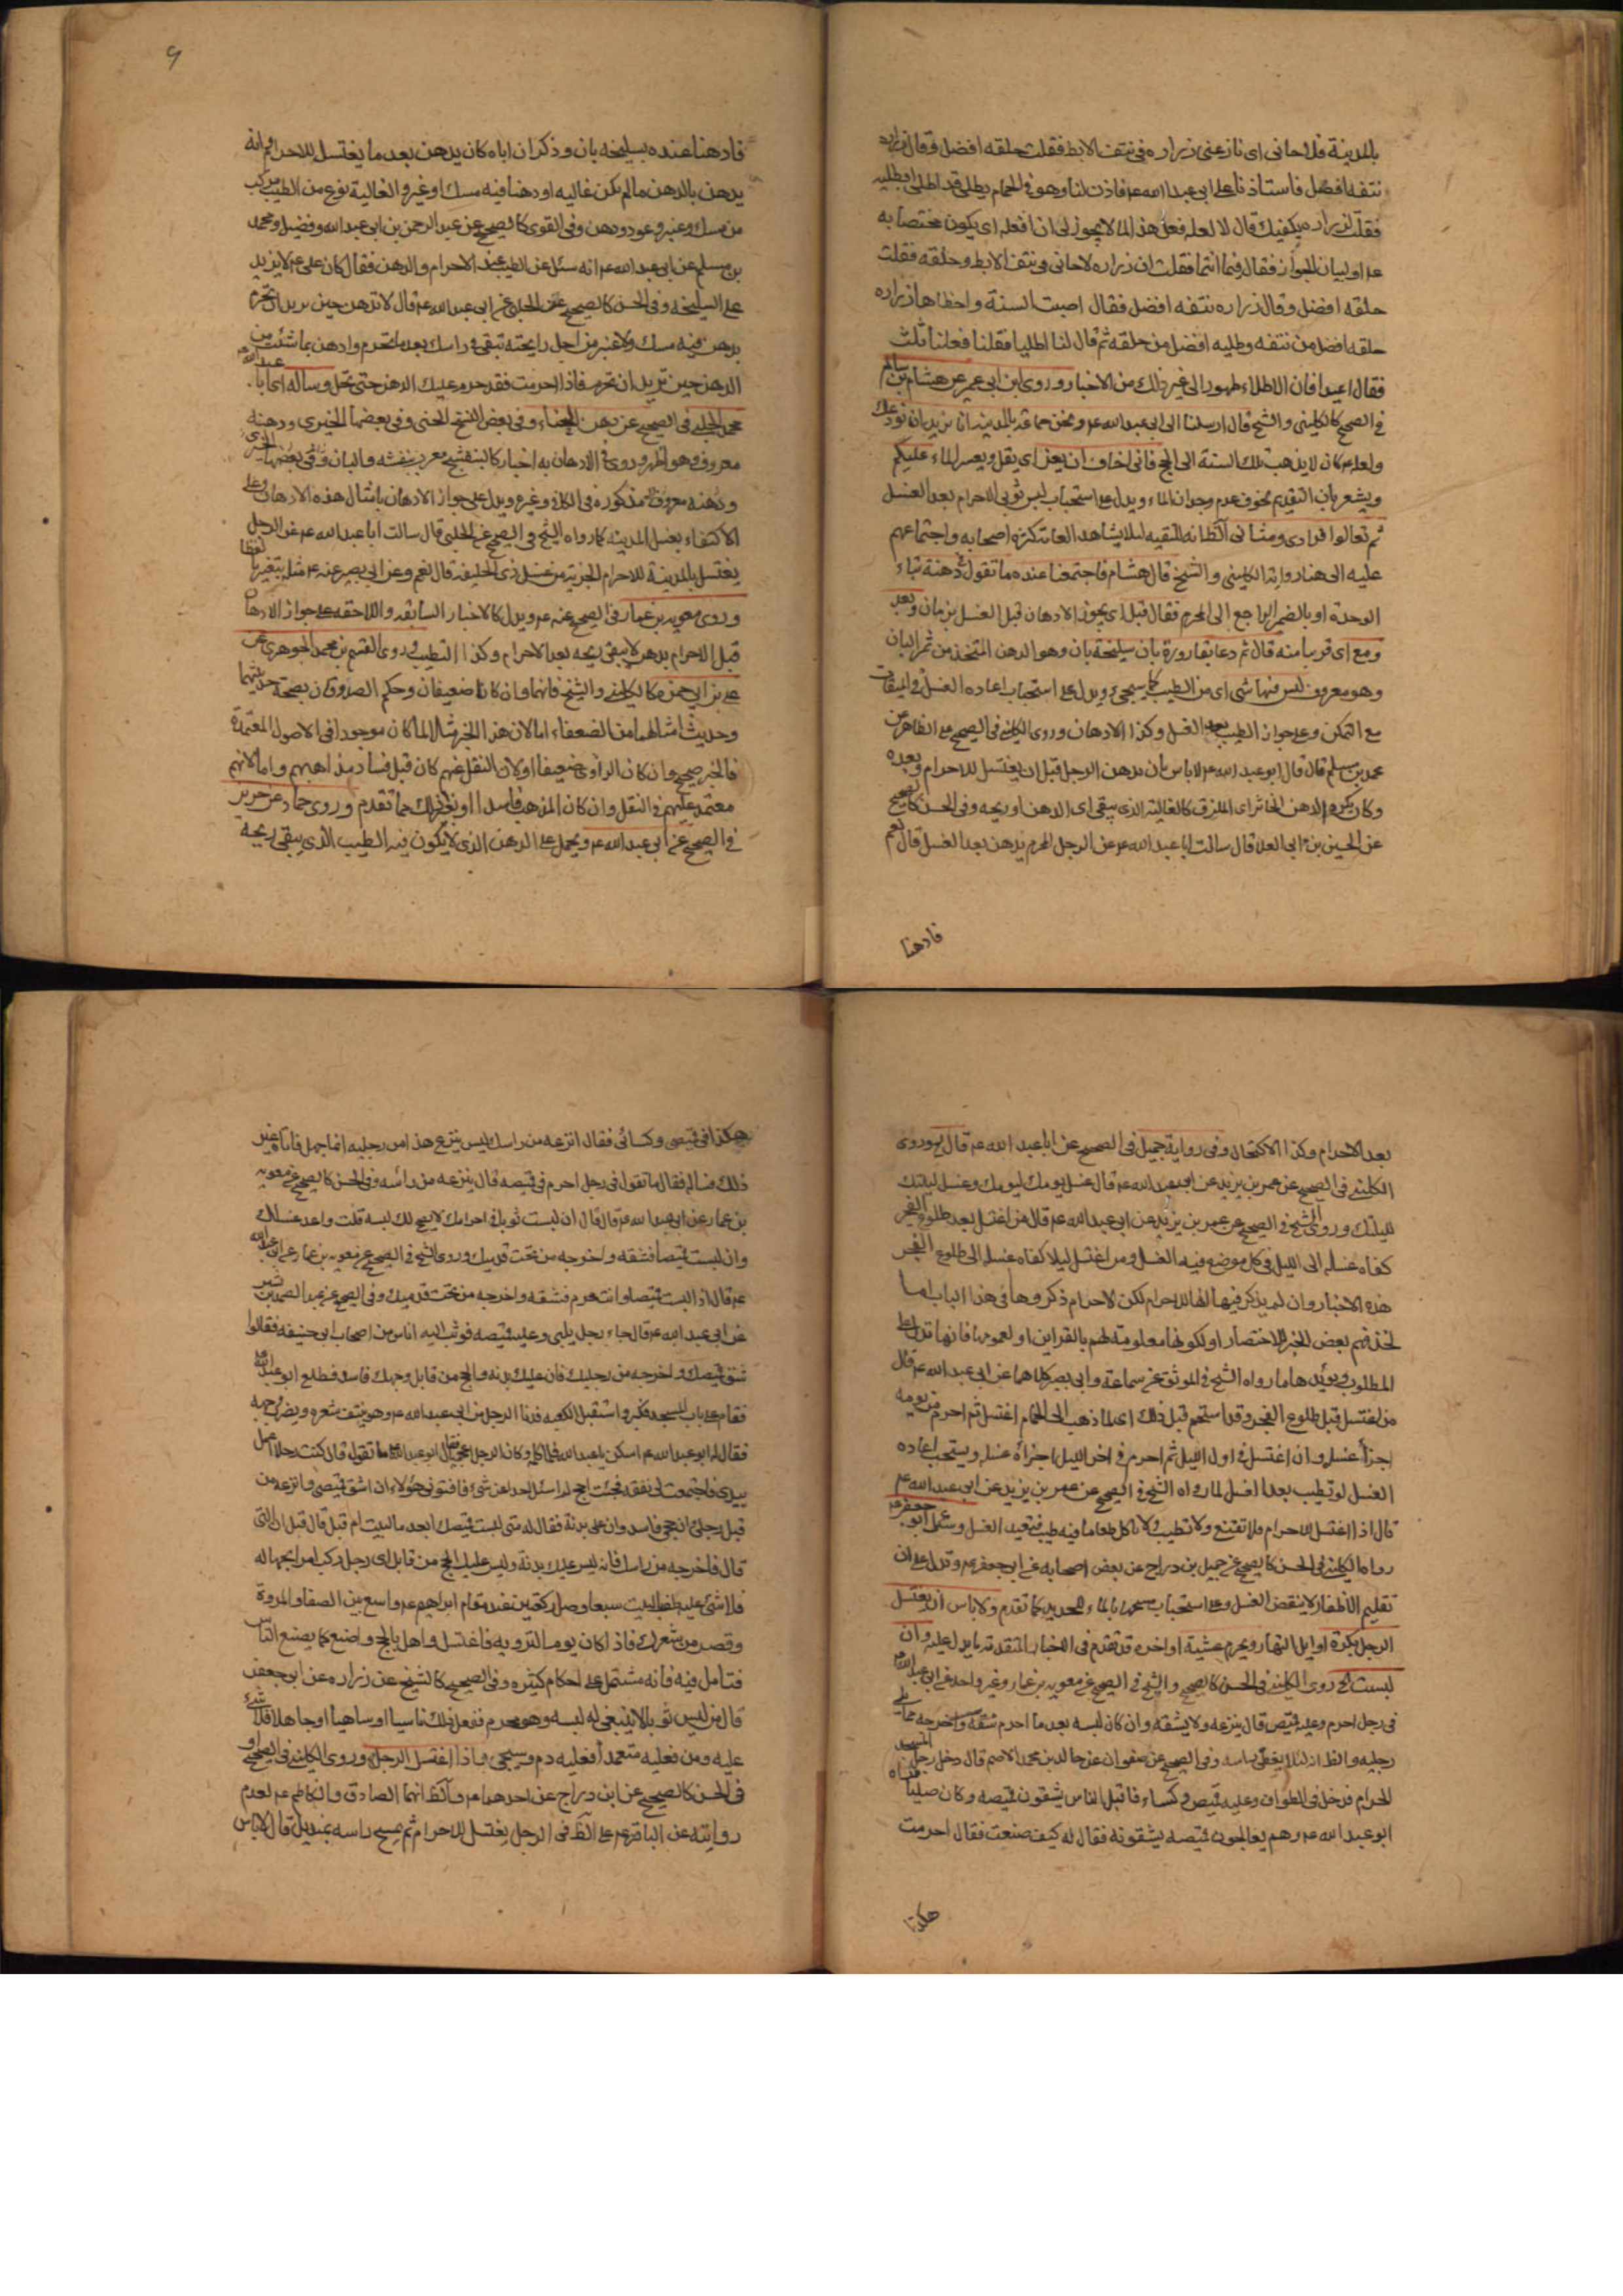 بالمدينة فلاحاني اى نازعنى زراره فى نتف الابط فقلت حلقه افضل وقال زراره
نتفه افضل فاستاذنا على ابى عبد الله عم فاذن لنا وهو فى الحمام يطلى قد اطلى ابطيه
فقلت لزراره يكفيك قال لا لعله فعل هذا لما لا يجوز لى ان افعله اى يكون مختصا به
عم او لبيان الجواز فقال فيما انتما فقلت ان زراره لاحانى فى نتف الابط وحلقه فقلت
حلقه افضل وقال زراره نتفه افضل فقال اصبت السنة واخطاها زراره
حلقه افضل من نتفه وطليه افضل من حلقه ثم قال لنا اطليا فقلنا فعلنا ثلث
فقال اعيدا فان الاطلاء طهور الى غير ذلك من الاخبار وروى ابن ابى عمير عن هشام بن سالم
فى الصحيح كالكلينى والشيخ قال ارسلنا الى ابى عبد الله عم ونحن جماعة بالمدينة انا نريد ان نودعك
ولعله كان لا يذهب تلك السنة الى الحج فانى اخاف ان يعز اى يقل ويعسر الماء عليكم
ويشعر بان التقديم لخوف عدم وجدان الماء ويدل على استحباب لبس ثوبى الاحرام بعد الغسل
ثم تعالوا فرادى ومثانى الظ انه للتقيه لئلا يشاهد العامة كثرة اصحابه واجتماعهم
عليه الى هنا رواية الكلينى والشيخ قال هشام فاجتمعنا عنده ما تقول فى دهنة بتاء
الوحدة او بالضمير الراجع الى المحرم فقال قبل اى يجوز الادهان قبل الغسل بزمان وبعد
ومع اى قريبا منه قال ثم دعا بقارورة بان سليخة بان وهو الدهن المتخذ من ثمر البان
وهو معروف ليس فيها شى اى من الطيب كما سيجىء ويدل على استحباب اعاده الغسل فى الميقات
مع التمكن وعلى جواز الطيب بعد الغسل وكذا الادهان وروى الكلينى فى الصحيح على الظاهر عن
محمد بن مسلم قال قال ابو عبد الله عم لا باس بان يدهن الرجل قبل ان يغتسل للاحرام وبعده
وكان يكره الدهن الخاثر اى الملزق كالغالية الذى يبقى اى الدهن او ريحه وفى الحسن كالصحيح
عن الحسين بن ابى العلا قال سالت ابا عبد الله عم عن الرجل المحرم يدهن بعد الغسل قال نعم
فادهنا
فادهنا عنده بسليخه بان وذكر ان اباه كان يدهن بعد ما يغتسل للاحرام وانه
يدهن بالدهن ما لم يكن غاليه او دهنا فيه مسك او عنبر والغالية نوع من الطيب مركب
من مسك وعنبر وعود ودهن وفى القوى كالصحيح عن عبد الرحمن بن ابى عبد الله وفضيل ومحمد
بن مسلم عن ابى عبد الله عم انه سئل عن الطيب عند الاحرام والدهن فقال كان على عم لا يزيد
على السليخه وفى الحسن كالصحيح عن الحلبى عن ابى عبد الله عم قال لا تدهن حين تريد ان تحرم
بدهن فيه مسك ولا عنبر من اجل رايحته تبقى فى راسك بعد ما تحرم وادهن بما شئت من
الدهن حين تريد ان تحرم فاذا احرمت فقد حرم عليك الدهن حتى تحل وساله اى ابا عبد الله عم
محمد الحلبى فى الصحيح عن دهن الحناء وفى بعض النسخ الحنى وفى بعضها الخيرى ودهنه
معروف وهو اظهر وروى فى الادهان به اخبار كالبنفسج معرب بنفشه والبان وفى بعضها الخيرى
ودهنه معروف مذكوره فى الكافى وغيره ويدل على جواز الادهان بامثال هذه الادهان وعلى
الاكتفاء بغسل المدينة كما رواه الشيخ فى الصحيح عن الحلبى قال سالت ابا عبد الله عم عن الرجل
يغتسل بالمدينة للاحرام ايجزيه عن غسل ذى الحليفه قال نعم وعن ابى بصير عنه عم مثله بتغيير ما لفظا
وروى معويه بن عمار فى الصحيح عنه عم ويدل كالاخبار السابقه واللاحقه على جواز الادهان
قبل الاحرام بدهن لا يبقى ريحه بعد الاحرام وكذا التطيب وروى القسم بن محمد الجوهرى عن
على بن ابى حمزه كالكلينى والشيخ فانهما وان كانا ضعيفان وحكم الصدوقان بصحة حديثهما
وحديث امثالهما من الضعفاء اما لان هذا الخبر مثلا لما كان موجودا فى الاصول المعتمدة
فالخبر صحيح وان كان الراوى ضعيفا او لان النقل عنهم كان قبل فساد مذاهبهم واما لانهم
معتمد عليهم فى النقل وان كان المذهب فاسدا او نظراؤك مما تقدم وروى حماد عن حريز
فى الصحيح عن ابى عبد الله عم ويحمل على الدهن الذى لا يكون فيه الطيب الذى يبقى ريحه
بعد الاحرام وكذا الاكتحال وفى رواية جميل فى الصحيح عن ابا عبد الله عم قال وروى
الكلينى فى الصحيح عن عمر بن يزيد عن ابى عبد الله عم قال غسل يومك ليومك وغسل ليلتك
لليلتك وروى الشيخ فى الصحيح عن عمر بن يزيد عن ابى عبد الله عم قال من اغتسل بعد طلوع الفجر
كفاه غسله الى الليل فى كل موضع فيه الغسل ومن اغتسل ليلا كفاه غسله الى طلوع الفجر
هذه الاخبار وان لم يذكر فيها انها للاحرام لكن الاحرام ذكروها فى هذا الباب اما
لحذفهم بعض الخبر للاختصار او لكونها معلومة لهم بالقراين او لعمومها فانها تدل على
المطلوب ويؤيدها ما رواه الشيخ فى الموثق عن سماعة وابى بصير كلاهما عن ابى عبد الله عم قال
من اغتسل قبل طلوع الفجر وقد استحم قبل ذلك اى لما ذهب الى الحمام اغتسل ثم احرم من يومه
اجزأ غسله وان اغتسل فى اول الليل ثم احرم فى اخر الليل اجزأه غسله ويستحب اعاده
الغسل لو تطيب بعد الغسل لما رواه الشيخ فى الصحيح عن عمر بن يزيد عن ابى عبد الله عم
قال اذا اغتسل للاحرام فلا تقنع ولا تطيب ولا تاكل طعاما فيه طيب فتعيد الغسل وسئل ابو جعفر عم
رواه الكلينى فى الحسن كالصحيح عن جميل بن دراج عن بعض اصحابه عن ابى جعفر عم وتدل على ان
تقليم الاظفار لا ينقض الغسل وعلى استحباب مسحها بالماء للحديد كما تقدم ولا باس ان يغتسل
الرجل بكرة اوايل النهار ويحرم عشية اواخره قد تقدم فى الاخبار المتقدمة ما يدل عليه وان
لبست روى الكلينى فى الحسن كالصحيح والشيخ فى الصحيح عن معويه بن عمار وغير واحد عن ابى عبد الله عم
فى رجل احرم وعليه قميص قال ينزعه ولا يشقه وان كان لبسه بعد ما احرم شقه واخرجه مما يلى
رجليه والظ انه لئلا يغطى راسه وفى الصحيح عن صفوان عن خالد بن محمد الاصم قال دخل رجل المسجد
الحرام فدخل فى الطواف وعليه قميص وكساء فاقبل الناس يشقون قميصه وكان صليبا فراه
ابو عبد الله عم وهم يعالجون قميصه يشقونه فقال له كيف صنعت فقال احرمت
هكذا
هكذا فى قميصى وكسائى فقال انزعه من راسك ليس ينزع هذا من رجليه انما جهل فاتاه غير
ذلك فساله فقال ما تقول فى رجل احرم فى قميصه قال ينزعه من رأسه وفى الحسن كالصحيح عن معويه
بن عمار عن ابى عبد الله عم قال قال ان لبست ثوبا فى احرامك لا يصلح لك لبسه فلب واعد غسلك
وان لبست قميصا فشقه واخرجه من تحت قدميك وروى الشيخ فى الصحيح عن معويه بن عمار عن ابى عبد الله
عم قال اذا لبست قميصا وانت محرم فشقه واخرجه من تحت قدميك وفى الصحيح عن عبد الصمد بن بشير
عن ابى عبد الله عم قال جاء رجل يلبى وعليه قميصه فوثب اليه اناس من اصحاب ابى حنيفه فقالوا
شق قميصك واخرجه من رجليك فان عليك بدنه والحج من قابل وحجك فاسد فطلع ابو عبد الله عم
فقام على باب المسجد فكبر واستقبل الكعبه فدنا الرجل من ابى عبد الله عم وهو ينتف شعره ويضرب وجهه
فقال له ابو عبد الله عم اسكن يا عبد الله فلما كلمه وكان الرجل اعجميا فقال ابو عبد الله عم ما تقول قال كنت رجلا اعمل
بيدى فاجتمعت لى نفقه فجئت احج لم اسئل احدا عن شئ فافتونى هؤلاء ان اشق قميصى وانزعه من
قبل رجلى وان حجى فاسد وان على بدنة فقال له متى لبست قميصك ابعد ما لبيت ام قبل قال قبل ان البى
قال فاخرجه من راسك فانه ليس عليك بدنة وليس عليك الحج من قابل اى رجل ركب امرا بجهاله
فلا شئ عليه طف بالبيت سبعا وصل ركعتين عند مقام ابراهيم عم واسع بين الصفا والمروة
وقصر من شعرك فاذا كان يوم الترويه فاغتسل واهل بالحج واصنع كما يصنع الناس
فتامل فيه فانه مشتمل على احكام كثيره وفى الصحيح كالشيخ عن زراره عن ابى جعفر
قال من لبس ثوبا لا ينبغى له لبسه وهو محرم ففعل ذلك ناسيا او ساهيا او جاهلا فلا شئ
عليه ومن فعله متعمدا فعليه دم وسيجى واذا اغتسل الرجل وروى الكلينى فى الصحيح او
فى الحسن كالصحيح عن ابن دراج عن احدهما عم والظ انهما الصادق والكاظم عم لعدم
روايته عن الباقر عم على الظ فى الرجل يغتسل للاحرام ثم يمسح راسه بمنديل قال لا باس